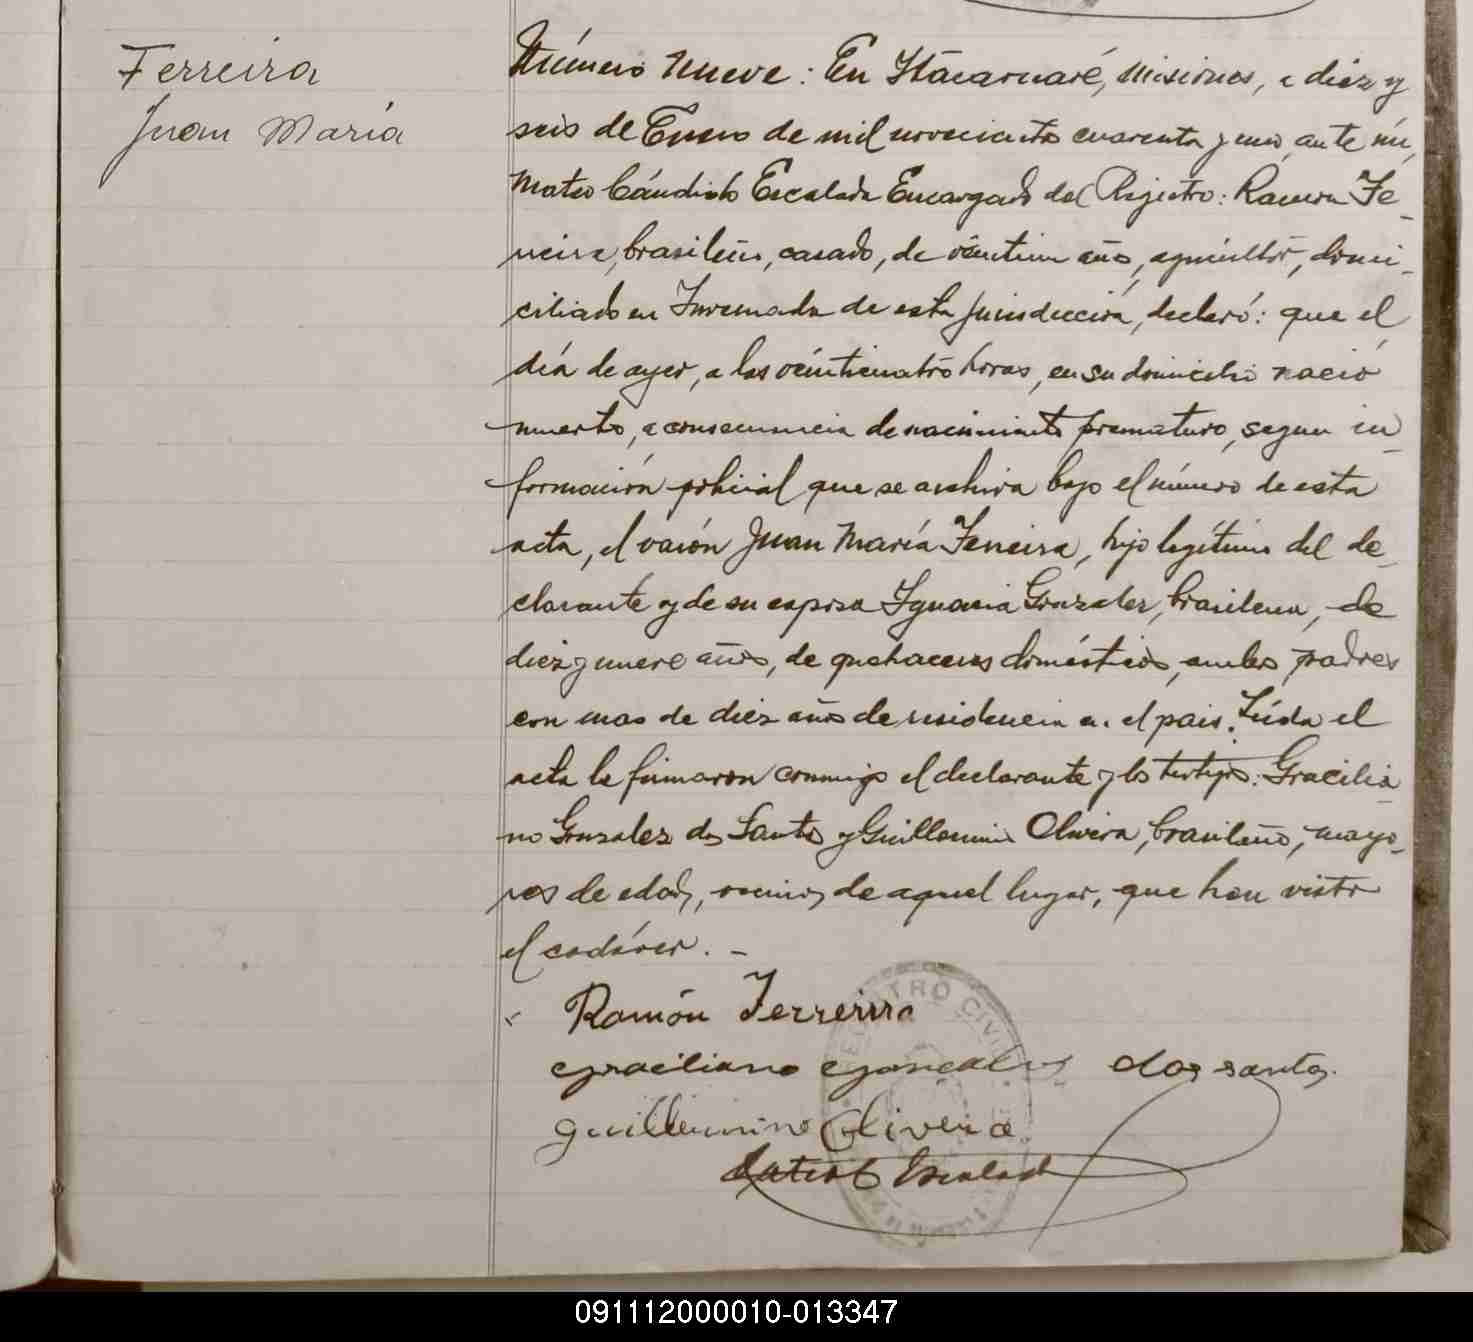 Ferreira
Juan María
Número nueve: En Itacaruaré, Misiones, a diez y
seis de Enero de mil novecientos cuarenta y uno, ante mí,
Mateo Cándido Escalada Encargado del Registro: Ramón Fe-
rreira, brasileño, casado, de veintiun años, agricultor, domi-
ciliado en de esta jurisdicción, declaró: que el
día de ayer, a las veinticuatro horas, en su domicilio nació
muerto, a consecuencia de nacimiento prematuro, segun in-
formación policial que se archiva bajo el número de esta
acta, el varón Juan María Ferreira, hijo legítimo del de-
clarante y de su esposa Ignacia Gonzalez, brasilena, de
diez y nueve años, de quehaceres domésticos, ambos padres
con mas de diez años de residencia en el pais. Leída el
acta la firmaron conmigo el declarante y los testigos: Gracilia-
no Gonzalez dos Santos y Guillermino Olivera, brasileño, mayo-
res de edad, vecinos de aquel lugar, que han visto
el cadáver. -
Ramón Ferreira
graciliano gonçalves dos santos
guillermino Olivera
Mateo C Escalada
REGISTRO CIVIL
091112000010-013347